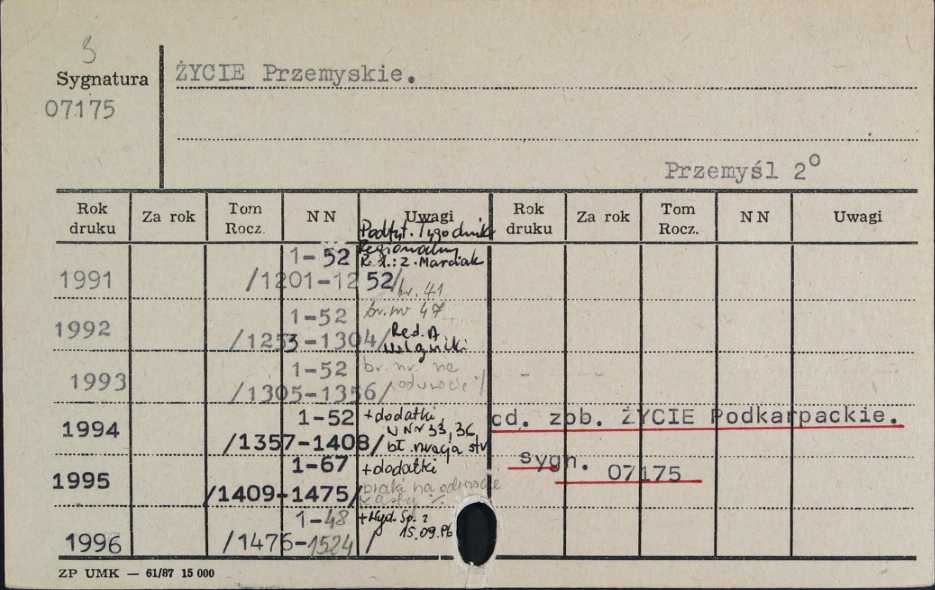 3
Sygnatura
ŻYCIE Przemyskie.
07175
Przemyśl 2°
Rok druku Za rok Tom Rocz. NN Uwagi Rok druku Za rok Tom Rocz. NN Uwagi
Podtyt. Tygodnik
Regionalny
1-52 R. n.: Z. Marciak
1991 /1201-1252/
br. 41
1-52 br. nr 47
1992 /1253-1304/ Red. A
1-52 br. nr. na
1993 /1305-1356/ odwrocie
1-52 +dodatki
cd. zob. ŻYCIE Podkarpackie.
1994 w Nr 33, 36,
/1357-1408/ bł. nracja str
1-67 +dodatki
sygn. 07175
1995 /1409-1475/ braki na odwrocie
karty %
1-48 +Wyd. Sp. z
15.09.96
1996 /1476-1524/
ZP UMK — 61/87 15 000